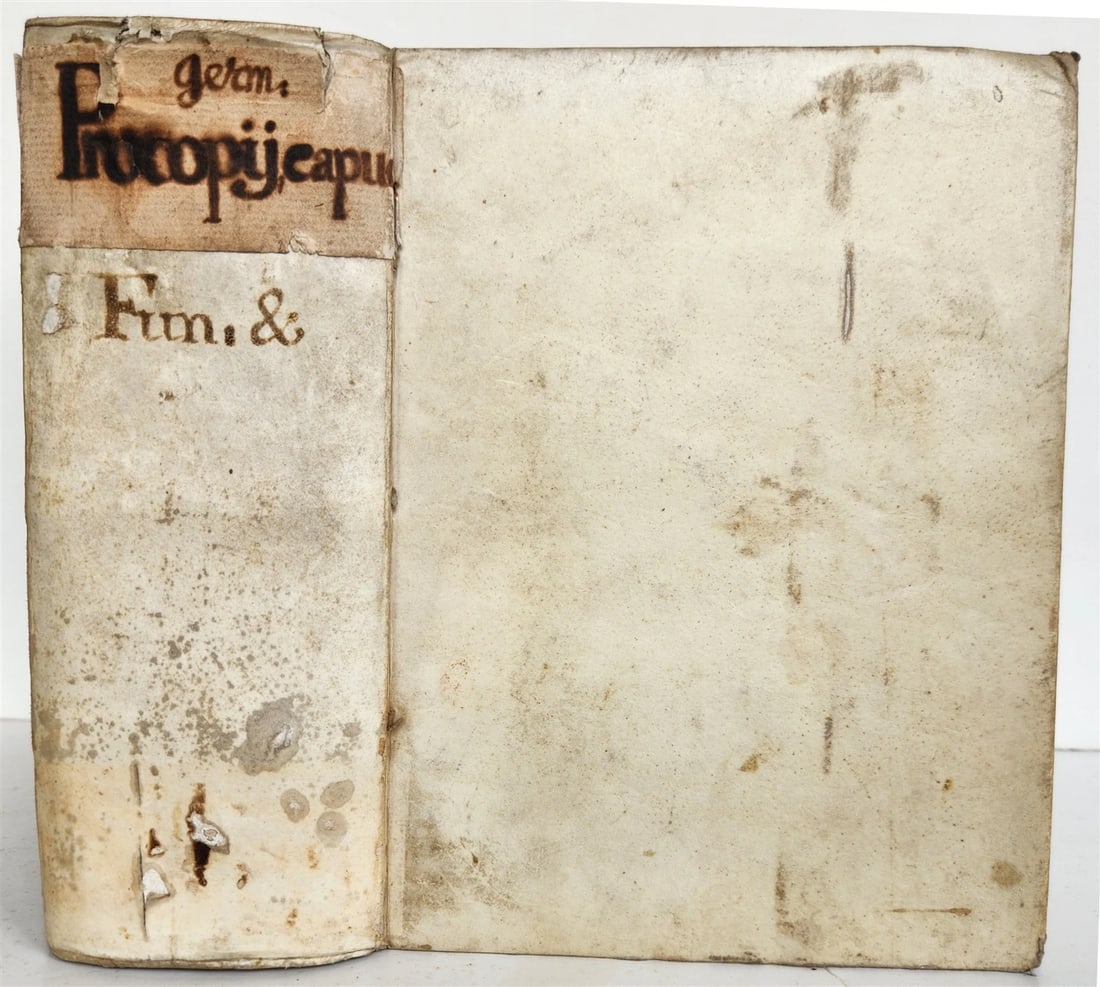 germ.
Procopij, capuc
Fun. &